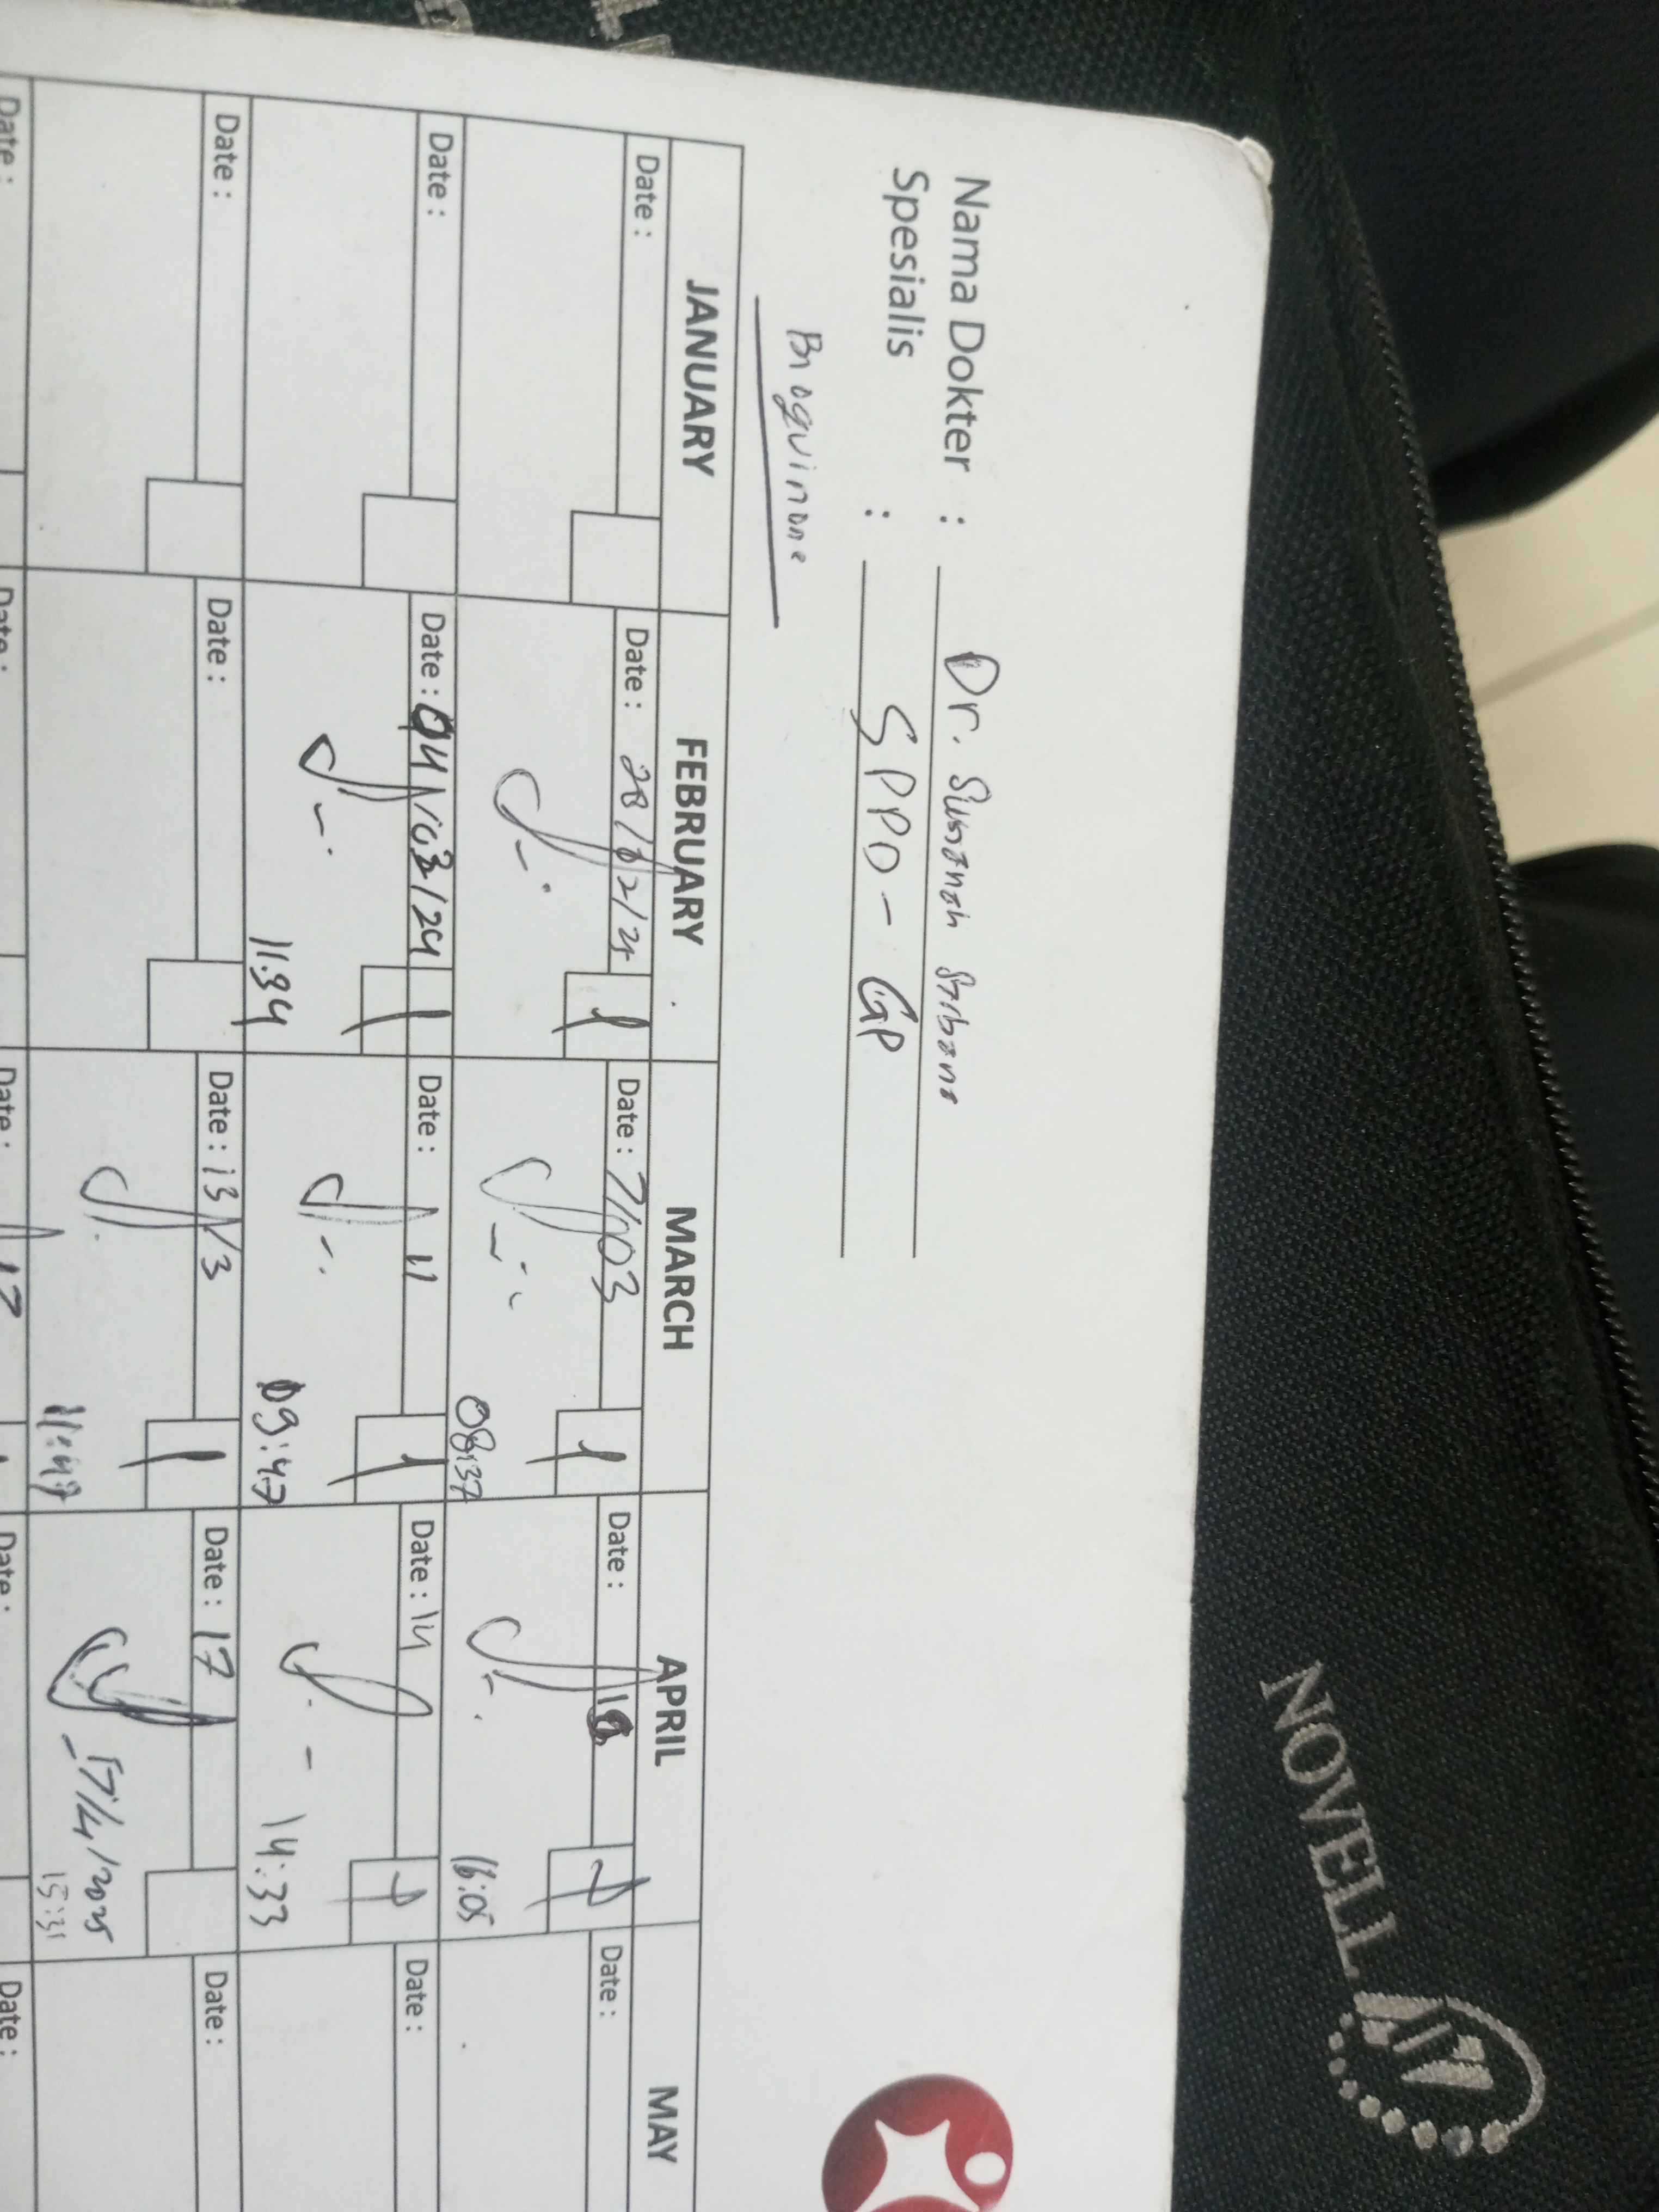 Nama Dokter : Dr. Susanah
Spesialis : SPPD - GP
JANUARY FEBRUARY MARCH APRIL MAY
Date : Date : 28/02/24 Date : 7/03 Date : Date :
08:37 16:05
Date : Date : 04/03/24 Date : 11 Date : 14 Date :
11.34 09:47 14:33
Date : Date : Date : 13/3 Date : 17 Date :
11:49 17/4/2025
15:31
Date : Date : Date : 17 Date : Date :
NOVELL